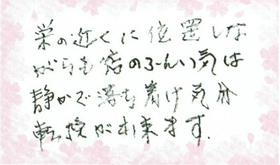 栄の近くに位置しな
がらも店のふんい気は
静かで落ち着け気分
転換が出来ます.